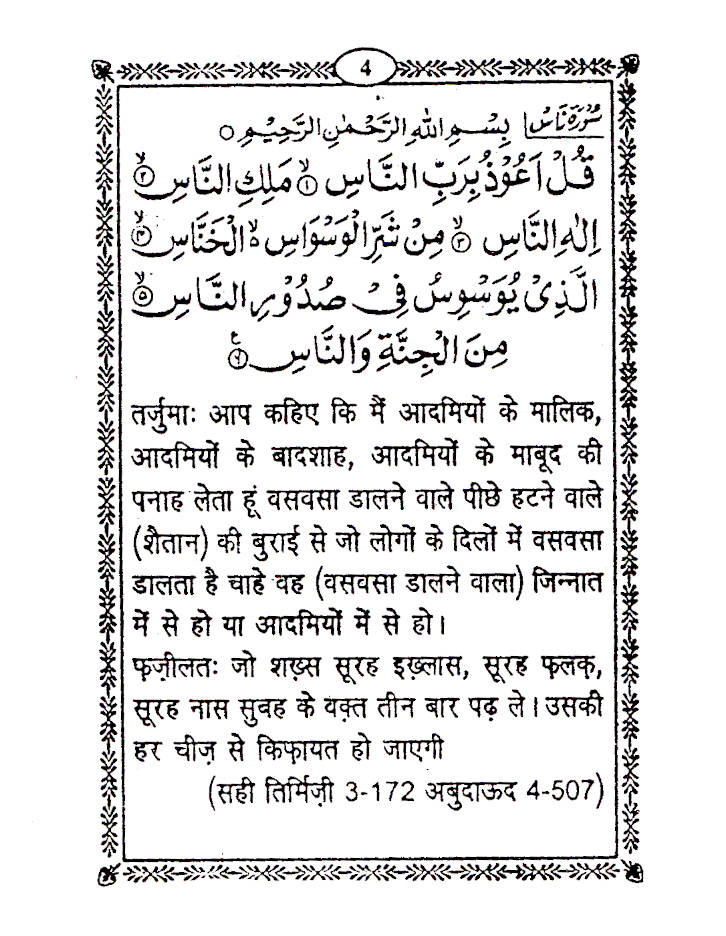 4
سُوْرَةُ نَاسْ بِسْمِ اللّٰهِ الرَّحْمٰنِ الرَّحِيْمِ ○
قُلْ اَعُوْذُ بِرَبِّ النَّاسِ ۙ﴿۱﴾ مَلِكِ النَّاسِ ۙ﴿۲﴾
اِلٰهِ النَّاسِ ۙ﴿۳﴾ مِنْ شَرِّ الْوَسْوَاسِ ەۙ الْخَنَّاسِ ۙ﴿۴﴾
الَّذِىْ يُوَسْوِسُ فِىْ صُدُوْرِ النَّاسِ ۙ﴿۵﴾
مِنَ الْجِنَّةِ وَالنَّاسِ ﴿۶﴾
तर्जुमाः आप कहिए कि मैं आदमियों के मालिक,
आदमियों के बादशाह, आदमियों के माबूद की
पनाह लेता हूं वसवसा डालने वाले पीछे हटने वाले
(शैतान) की बुराई से जो लोगों के दिलों में वसवसा
डालता है चाहे वह (वसवसा डालने वाला) जिन्नात
में से हो या आदमियों में से हो।
फ़ज़ीलतः जो शख़्स सूरह इख़्लास, सूरह फ़लक,
सूरह नास सुबह के वक़्त तीन बार पढ़ ले। उसकी
हर चीज़ से किफ़ायत हो जाएगी
(सही तिर्मिज़ी 3-172 अबुदाऊद 4-507)